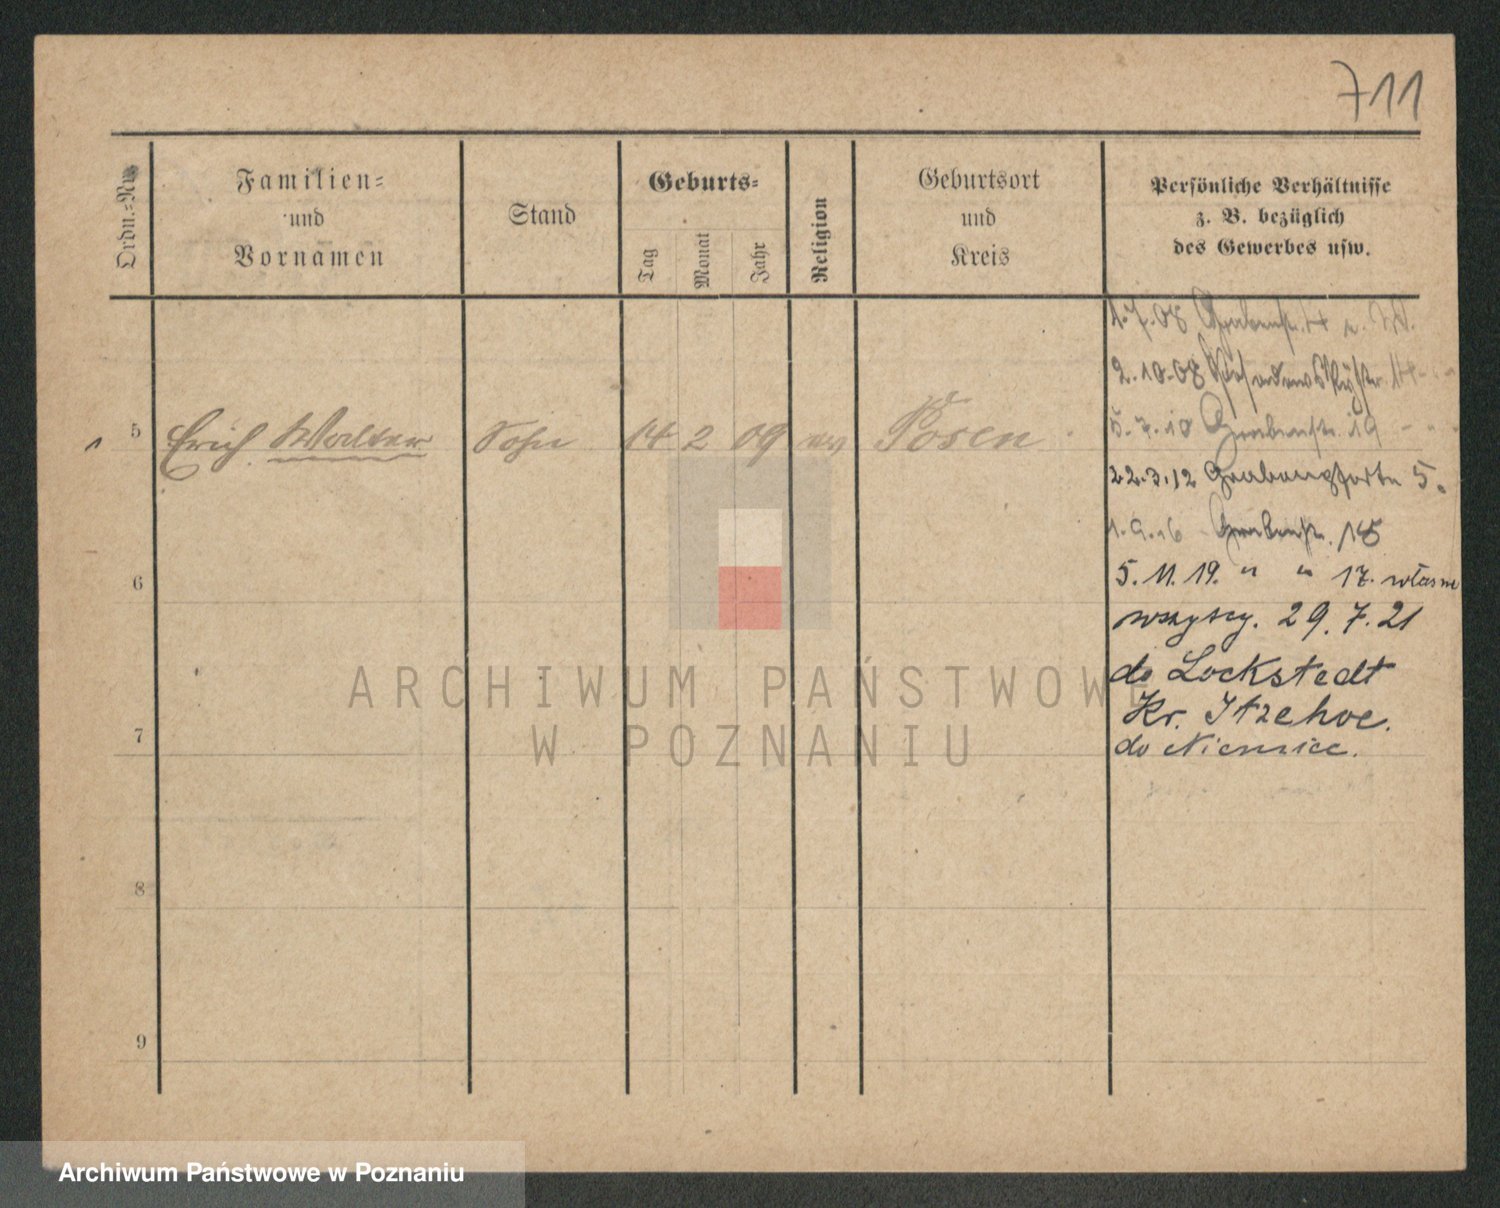 711
Ordn.-Nr.
Familien-
und
Vornamen
Stand
Geburts-
Tag
Monat
Jahr
Religion
Geburtsort
und
Kreis
Persönliche Verhältnisse
z. B. bezüglich
des Gewerbes usw.
1.7.08 Grabenstr.
2.10.08
5 Erich Walter Sohn 14 2 09 ev Posen
5.7.10 Grabenstr. 19
22.3.12 Grabenpforte 5.
1.9.16 Grabenstr.
6
5. 11. 19. " " 17. własne
wszyscy. 29. 7. 21
do Lockstedt
Kr. Itzehoe.
7
do Niemiec.
8
9
ARCHIWUM PAŃSTWOWE
W POZNANIU
Archiwum Państwowe w Poznaniu